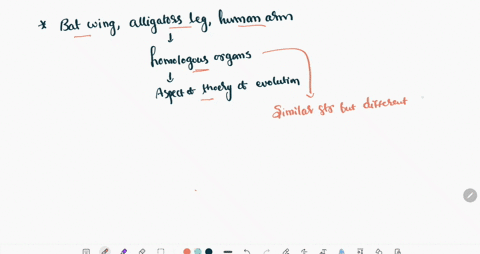 * Bat wing, alligators leg, human arm
homologous organs
Aspect of theory of evolution
Similar str but different